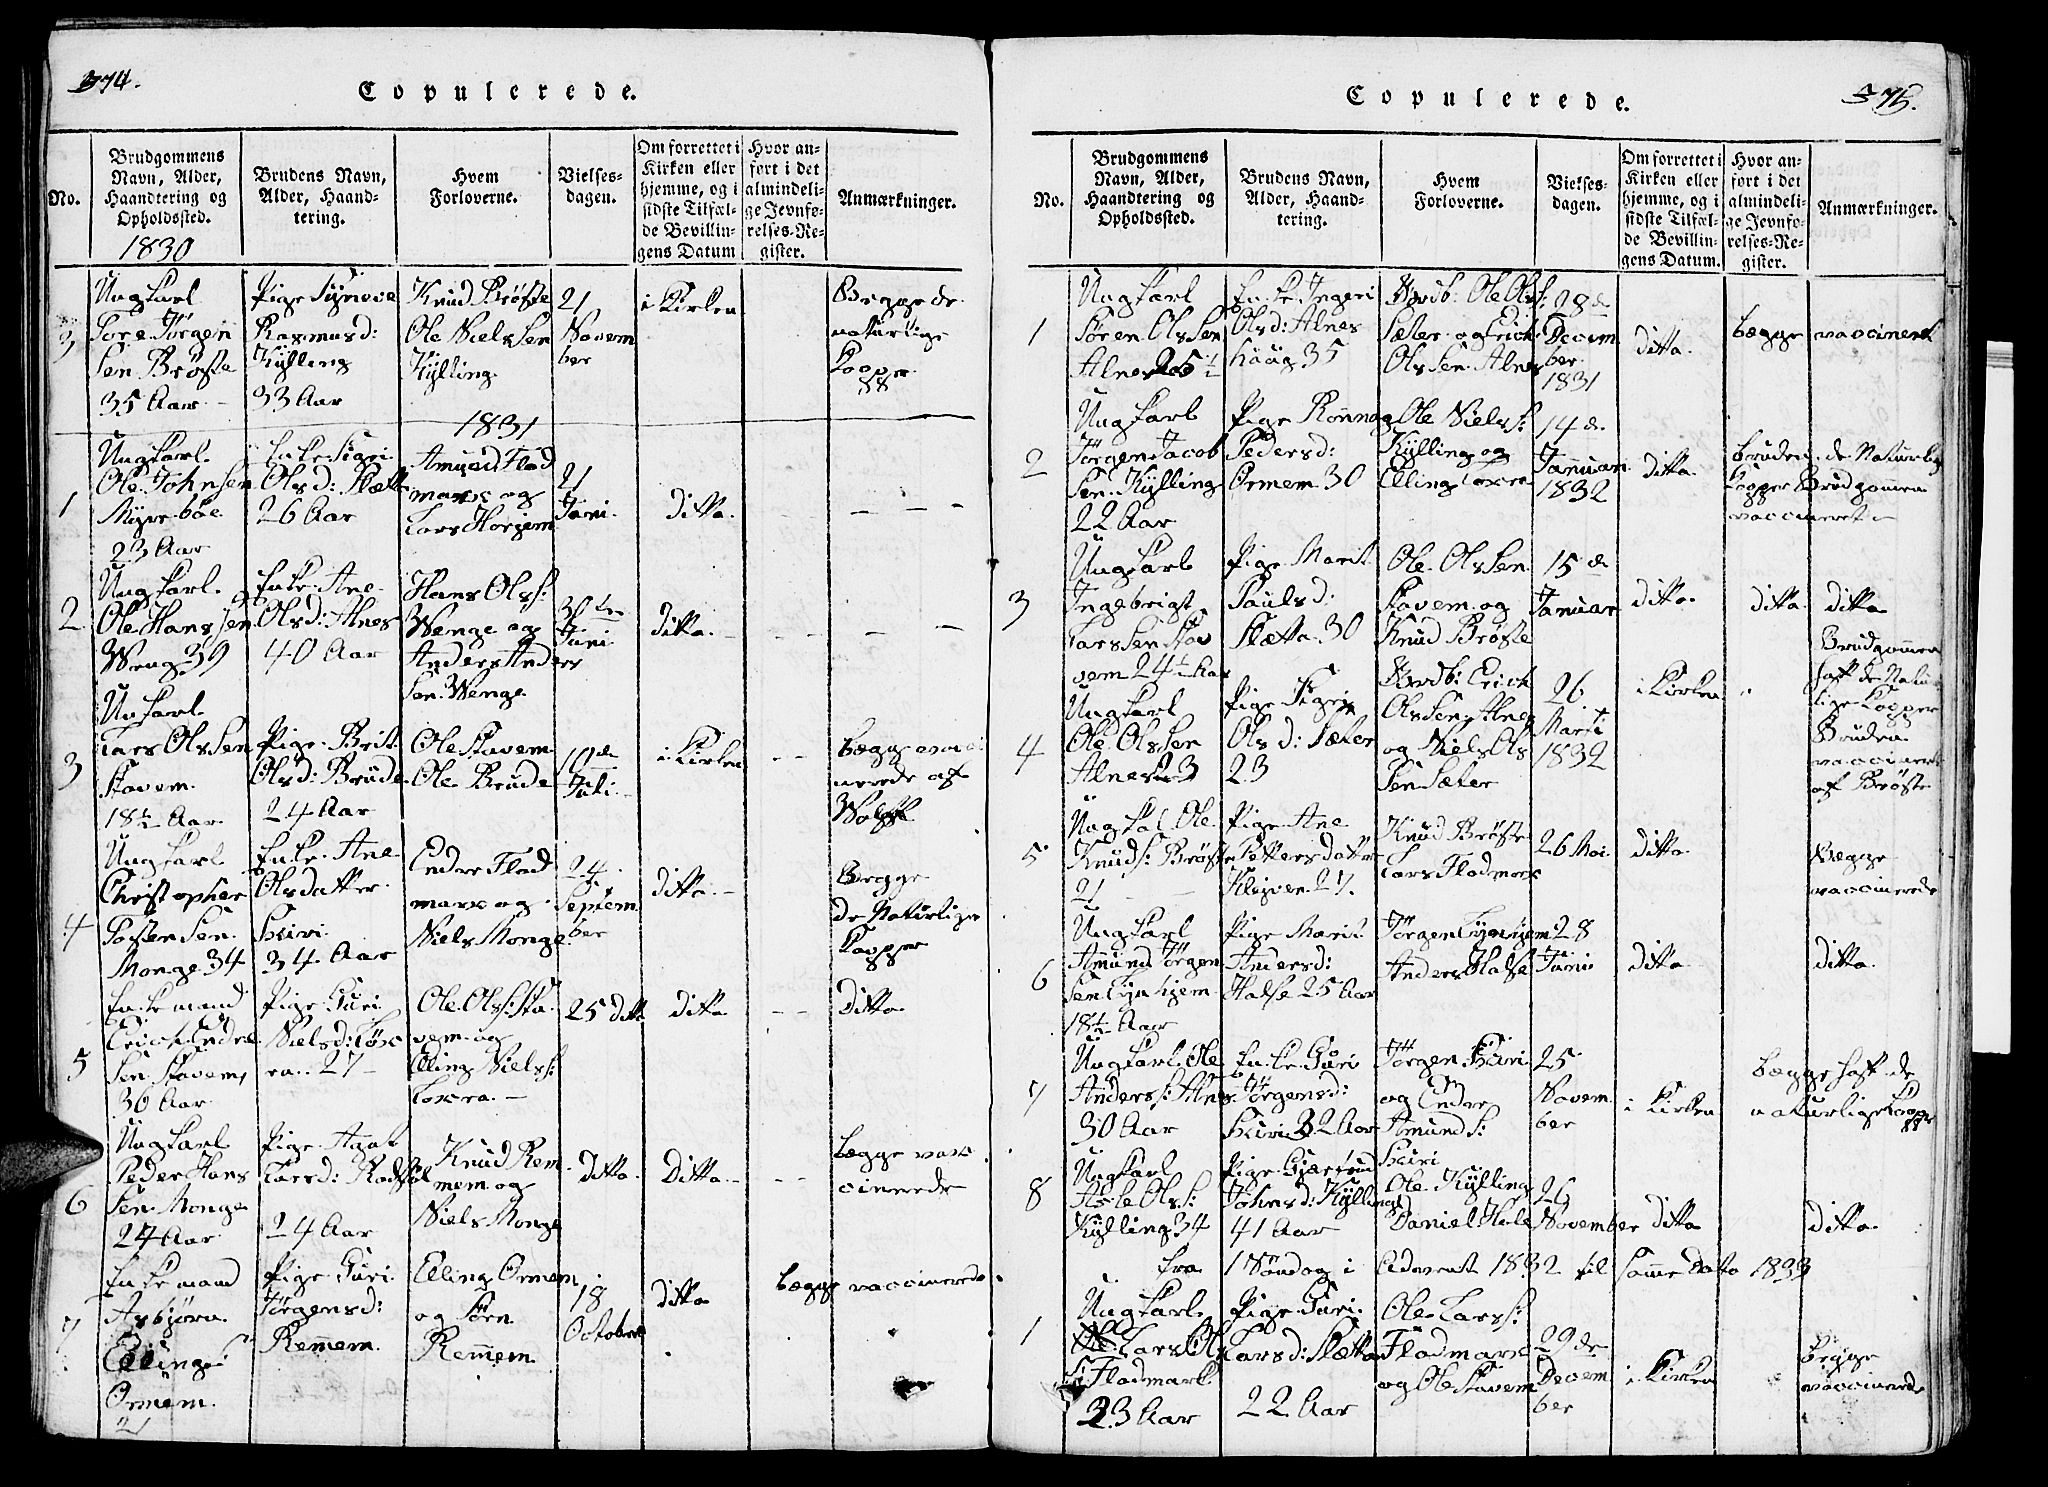 374.
Copulerede.
No.
Brudgommens
Navn, Alder,
Haandtering og
Opholdssted.
Brudens Navn,
Alder, Haand-
tering.
Hvem
Forloverne.
Vielses-
dagen.
Om forrettet i
Kirken eller
hjemme, og i
sidste Tilfæl-
de Bevillin-
gens Datum
Hvor an-
ført i det
almindeli-
ge Jevnfø-
relses-Re-
gister.
Anmærkninger.
1830
3
Ungkarl
Tore Jörgen
Sen Bröste
35 Aar
Pige Synove
Rasmusd:
Kylling
33 Aar
Knud Bröste
Ole Niels Sen
Kylling
21
Novem
ber
i Kirken
Begge de
naturlige
Kopper
1831
1
Ungkarl.
Ole Johnsen
Myrebøe
23 Aar
Enke Sigri
Olsd: Slætt
26 Aar
Amund Flad
marc og
Lars Horjem
21
Juni.
ditta.
2
Ungkarl.
Ole Hanssen
Weng 39
Enke Ane
Olsd: Alnes
40 Aar
Hans Olss:
Wenge og
Anders Anders
Sen Wenge
30te
Juni
ditta.
3
Unkarl
Lars Ols Sen
Stavem.
18½ Aar
Pige Brit
Olsd: Brude
24 Aar
Ole Stavem
Ole Brude
10de
Juli
i Kirken
begge vacci
nerede af
4
Ungkarl
Christopher
Tosten Sen
Monge 34
Enke Ane
Olsdatter
Hivri
34 Aar
Endre Flad
marc og
Niels Monge
24
Septem
ber
ditta.
Begge
de Naturlige
Kopper
5
Enkemand
Erick Endre
Sen Stavem
30 Aar
Pige Guri
Nielsd: Lox
ra. 27
Ole Olss: Sta
vem og
Elling Nielss:
Loxra.
25 ditto
ditta
ditta
6
Ungkarl
Peder Hans
Sen Monge
24 Aar
Pige Agat
Larsd: Rødstøl
24 Aar
Knud Rem
mem og
Niels Monge
ditta
Ditta.
begge vac
cinerede
7
Enkemand
Asbjørn
Ellings:
Ormem.
21
Pige Guri
Jörgensd:
Rem̄em.
Elling Ormem
og Sörn
Rem̄em.
18
October
ditta
begge vaccinerede
375.
Copulerede.
No.
Brudgommens
Navn, Alder,
Haandtering og
Opholdssted.
Brudens Navn,
Alder, Haand-
tering.
Hvem
Forloverne.
Vielses-
dagen.
Om forrettet i
Kirken eller
hjemme, og i
sidste Tilfæl-
de Bevillin-
gens Datum.
Hvor an-
ført i det
almindeli-
ge Jevnfø-
relses-Re-
gister.
Anmærkninger.
1
Ungkarl
Sören Ols Sen
Alnes 25½
Enke Ingeri
Olsd: Alnes
haug 35
Ole Olss:
Sæter og Erick
Ols Sen Alnes
28de
Decem
ber
1831
ditta.
begge vaccineret
2
Ungkarl
Jörgen Jacob
Sen Kylling
22 Aar
Pige Ron̄nog
Pedersd:
Ormem 30
Ole Nielss:
Kylling og
Elling Loxra
14de
Januari
1832
ditta
bruden de Naturlig
Kopper Brudgomen
vaccineret
3
Ungkarl
Ingebrigt
Lars Sen Stav
vem 24½ Aar
Pige Marit
Paulsd:
Slætta 30
Ole Ols Sen
Stavem og
Knud Bröste
15de
Januar
ditta.
ditta. ditta
4
Ungkarl
Ole Ols Sen
Alnes 23
Pige Sigrj
Olsd: Sæter
23
Erick
Ols Sen Alnes
og Niels Ols
Sen Sæter
26
Marti
1832
i Kirken
Brudgom̄en
haft de Natur
lige Kopper
Bruden
vaccineret
af Bröste
5
Ungkal Ole
Knuds: Bröste
21
Pige Ane
Pettersdatter
Kleiven 27.
Knud Bröste
Lars Fladmarc
26 Mai
ditta
Begge
vaccinerede
6
Ungkarl
Amund Jörgen
Sen Lynhjem
18½ Aar
Pige Marit
Andersd:
Halse 25 Aar
Jörgen Lynhjem
Anders Halse
28
Juni
ditta
ditta.
7
Ungkarl Ole
Anderss: Alnes
30 Aar
Enke Guri
Jörgensd:
Hivri 32 Aar
Jörgen Hivri
og Endre
Amunds:
Hivri
25
Novem
ber
i Kirken
begge haft de
naturlige Kopper
8
Ungkarl
Aske Olss:
Kylling 34
Pige Gjærtrud
Johnsd: Kylling
41 Aar
Ole Kylling
Daniel Hole
26
November
ditta
ditta.
fra 1 Söndag i Advent 1832 til samme Dato 1833
1
Ungkarl
Lars Ol
S: Fladmark
23 Aar
Pige Guri
Larsd: Slætta
22 Aar
Ole Larss:
Fladmarc
og Ole Stavem
29de
Decem
ber
i Kirken
begge
vaccinerede